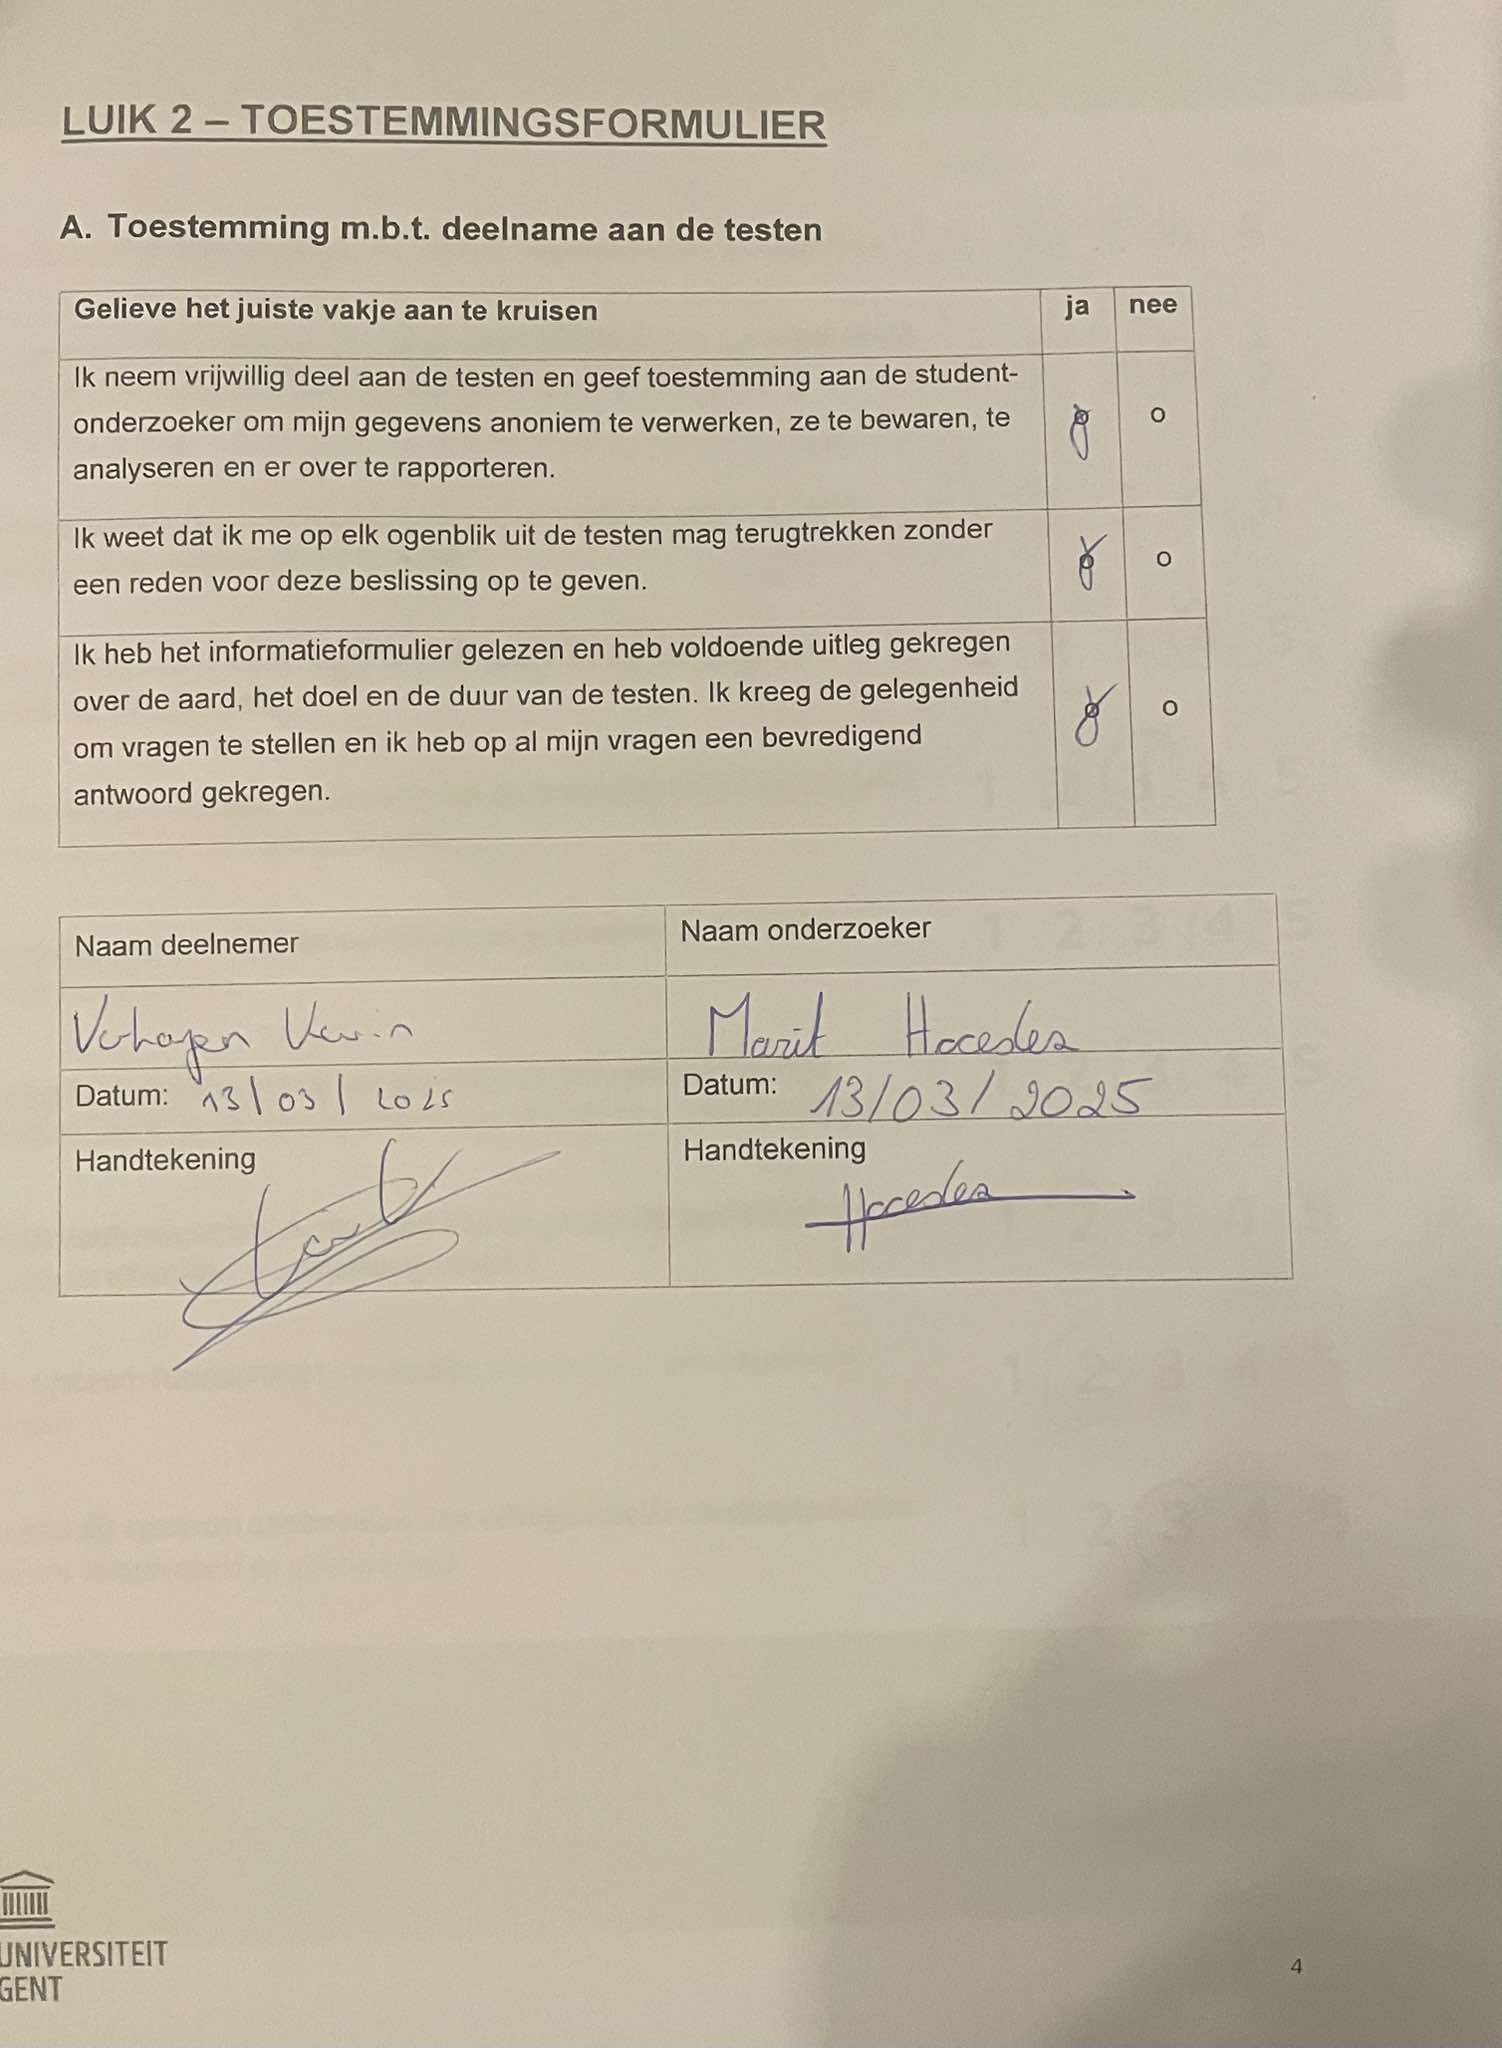 LUIK 2 – TOESTEMMINGSFORMULIER
A. Toestemming m.b.t. deelname aan de testen
Gelieve het juiste vakje aan te kruisen ja nee
Ik neem vrijwillig deel aan de testen en geef toestemming aan de student-
onderzoeker om mijn gegevens anoniem te verwerken, ze te bewaren, te
analyseren en er over te rapporteren.
o
Ik weet dat ik me op elk ogenblik uit de testen mag terugtrekken zonder
een reden voor deze beslissing op te geven.
o
Ik heb het informatieformulier gelezen en heb voldoende uitleg gekregen
over de aard, het doel en de duur van de testen. Ik kreeg de gelegenheid
om vragen te stellen en ik heb op al mijn vragen een bevredigend
antwoord gekregen.
o
Naam deelnemer Naam onderzoeker
Verhagen Marit
Datum: 13/03/2025 Datum: 13/03/2025
Handtekening Handtekening
UNIVERSITEIT
GENT
4